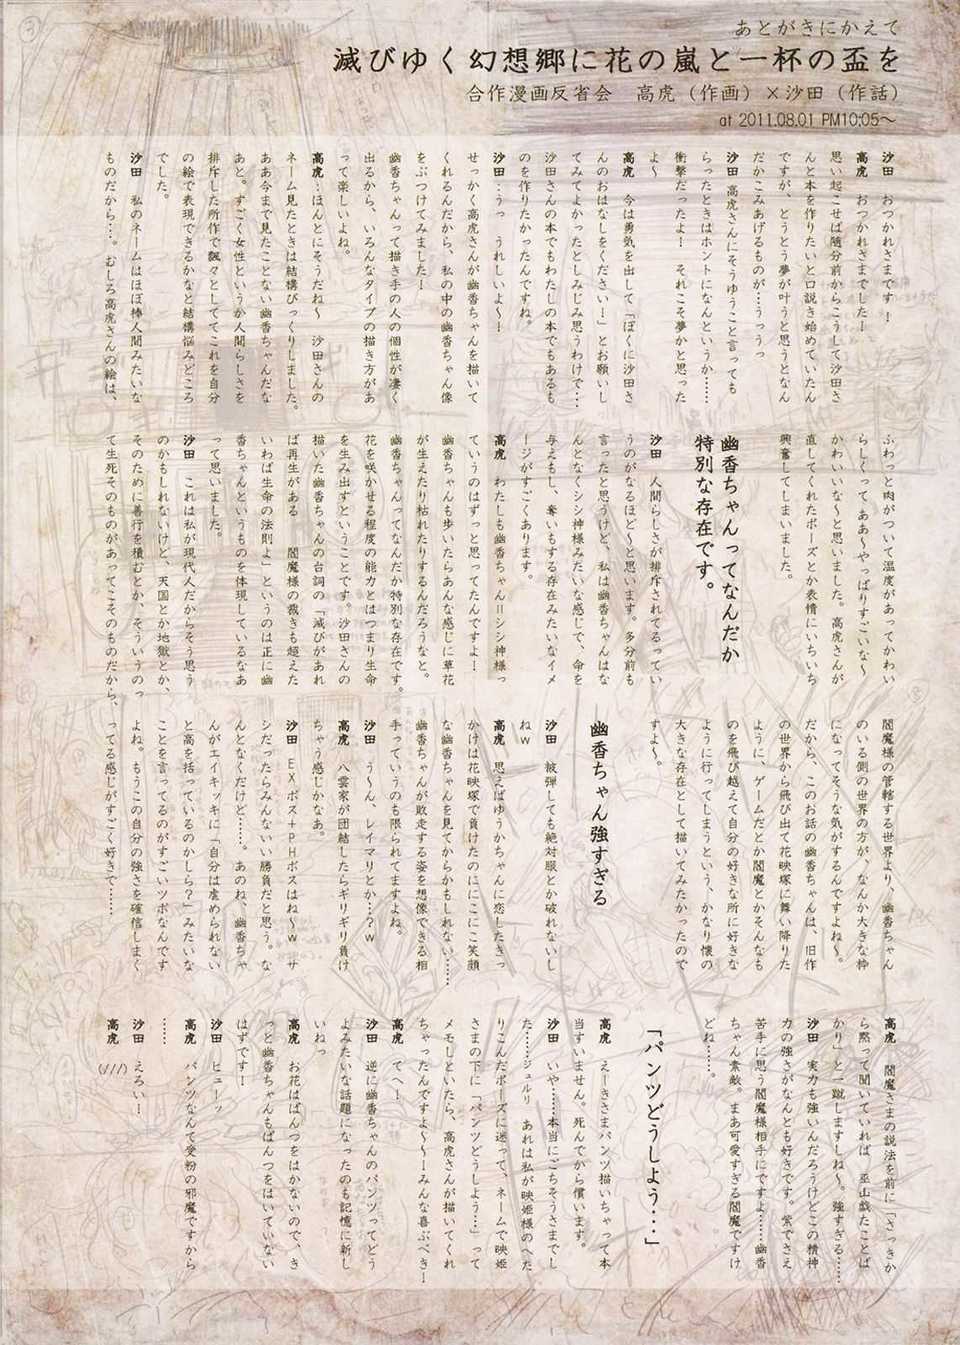 あとがきにかえて
滅びゆく幻想郷に花の嵐と一杯の盃を
合作漫画反省会　高虎（作画）×沙田（作話）
at 2011.08.01 PM10:05～
沙田　おつかれさまです！
高虎　おつかれさまでした！
思い起こせば随分前からこうして沙田さ
んと本を作りたいと口説き始めていたん
ですが、とうとう夢が叶うと思うとなん
だかこみあげるものが…うっうっ
沙田　高虎さんにそうゆうこと言っても
らったときはホントになんというか……
衝撃だったよ！　それこそ夢かと思った
よ～
高虎　今は勇気を出して「ぼくに沙田さ
んのおはなしをください！」とお願いし
てみてよかったとしみじみ思うわけで…
沙田さんの本でもわたしの本でもあるも
のを作りたかったんですね。
沙田…うっ　うれしいよ～！
せっかく高虎さんが幽香ちゃんを描いて
くれるんだから、私の中の幽香ちゃん像
をぶつけてみました！
幽香ちゃんって描き手の人の個性が凄く
出るから、いろんなタイプの描き方があ
って楽しいよね。
高虎…ほんとにそうだね～　沙田さんの
ネーム見たときは結構びっくりしました。
ああ今まで見たことない幽香ちゃんだな
あと。すごく女性というか人間らしさを
排斥した所作で飄々としててこれを自分
の絵で表現できるかなと結構悩みどころ
でした。
沙田　私のネームはほぼ棒人間みたいな
ものだから…。むしろ高虎さんの絵は、
ふわっと肉がついて温度があってかわい
らしくって、ああ～やっぱりすごいな～
かわいいな～と思いました。高虎さんが
直してくれたポーズとか表情にいちいち
興奮してしまいました。
幽香ちゃんってなんだか
特別な存在です。
沙田　人間らしさが排斥されてるってい
うのがなるほど～と思います。多分前も
言ったと思うけど、私は幽香ちゃんはな
んとなくシシ神様みたいな感じで、命を
与えもし、奪いもする存在みたいなイメ
ージがすごくあります。
高虎　わたしも幽香ちゃん＝シシ神様っ
ていうのはずっと思ってたんですよ！
幽香ちゃんも歩いたらあんな感じに草花
が生えたり枯れたりするんだろうなと。
幽香ちゃんってなんだか特別な存在です。
花を咲かせる程度の能力とはつまり生命
を生み出すということです。沙田さんの
描いた幽香ちゃんの台詞の「滅びがあれ
ば再生がある　閻魔様の裁きも超えた
いわば生命の法則よ」というのは正に幽
香ちゃんというものを体現しているなあ
って思いました。
沙田　これは私が現代人だからそう思う
のかもしれないけど、天国とか地獄とか、
そのために善行を積むとか、そういうのっ
て生死そのものがあってこそのものだから、
閻魔様の管轄する世界より、幽香ちゃん
のいる側の世界の方が、なんか大きな枠
になってそうな気がするんですよね～。
だから、このお話の幽香ちゃんは、旧作
の世界から飛び出て花映塚に舞い降りた
ように、ゲームだとか閻魔とかそんなも
のを飛び越えて自分の好きな所に好きな
ように行ってしまうという、かなり懐の
大きな存在として描いてみたかったので
すよ～。
幽香ちゃん強すぎる
沙田　被弾しても絶対服とか破れないし
ねｗ
高虎　思えばゆうかちゃんに恋したきっ
かけは花映塚で負けたのににこにこ笑顔
な幽香ちゃんを見てからかもしれない……
幽香ちゃんが敗走する姿を想像できる相
手っていうのも限られてますよね。
沙田　う～ん、レイマリとか…？ｗ
高虎　八雲家が団結したらギリギリ負け
ちゃう感じかなあ。
沙田　EXボス+PHボスはね～ｗ　サ
シだったらみんないい勝負だと思う。な
んとなくだけど……。あのね、幽香ちゃ
んがエイキッキに「自分は虐められない
と高を括っているのかしら？」みたいな
ことを言ってるのがすごいツボなんです
よね。もうこの自分の強さを確信しまく
ってる感じがすごく好きで……
高虎　閻魔さまの説法を前に「さっきか
ら黙って聞いていれば　巫山戯たことば
かり」と一蹴しますしね～。強すぎる……
沙田　実力も強いんだろうけどこの精神
力の強さがなんとも好きです。紫でさえ
苦手に思う閻魔様相手にですよ……幽香
ちゃん素敵。まあ可愛すぎる閻魔ですけ
どね……。
「パンツどうしよう…」
高虎　えーきさまパンツ描いちゃって本
当すいません。死んでから償います。
沙田　いや……本当にごちそうさまでし
た……ジュルリ　あれは私が映姫様のへた
りこんだポーズに迷って、ネームで映姫
さまの下に「パンツどうしよう…」って
メモしといたら、高虎さんが描いてくれ
ちゃったんですよ～！みんな喜ぶべき！
高虎　てへ！
沙田　逆に幽香ちゃんのパンツってどう
よみたいな話題になったのも記憶に新し
いねっ
高虎　お花はぱんつをはかないので、き
っと幽香ちゃんもぱんつをはいていない
はずです！
沙田　ヒューッ
高虎　パンツなんて受粉の邪魔ですから
……
沙田　えろい！
高虎　(////)